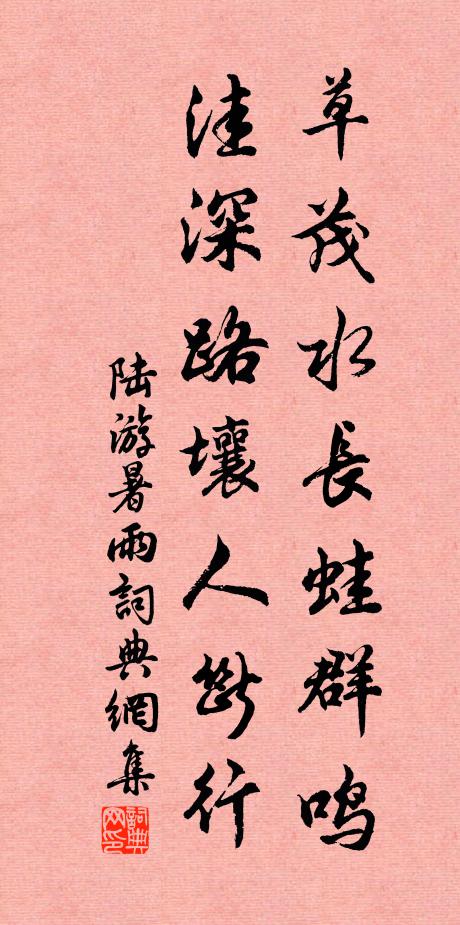 草茂水長蛙群鸣
洼深路壞人斷行
陆游暑雨詞典網集
詞典网印